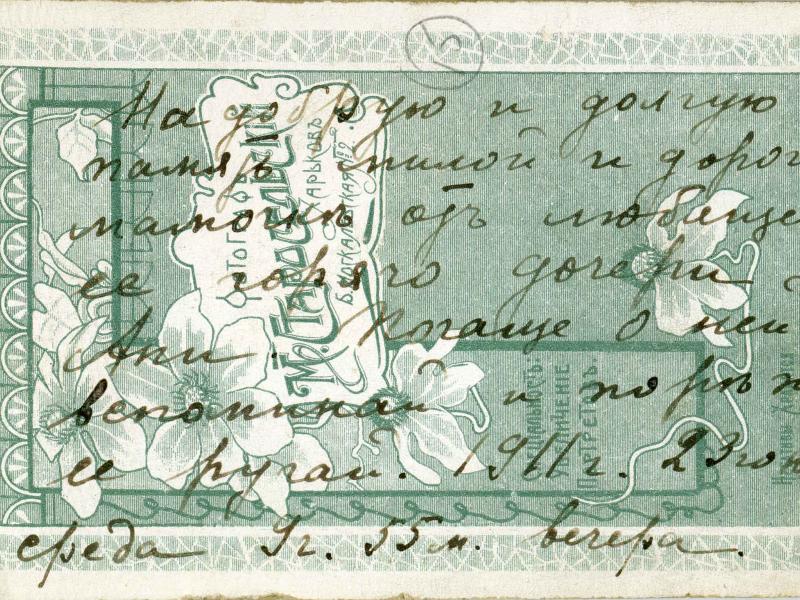 На добрую и долгую
память милой и дорог
мамочкѣ отъ любяще
ее горячо дочери
Ани. Почаще о ней
вспоминай и порѣж
ее ругай. 1911 г. 23го
среда 9 г. 55 м. вечера.
15
ФОТОГРАФІЯ
ХАРЬКОВЪ
СПЕЦІАЛЬНОСТЬ:
УВЕЛИЧЕНІЕ
ПОРТРЕТОВЪ.